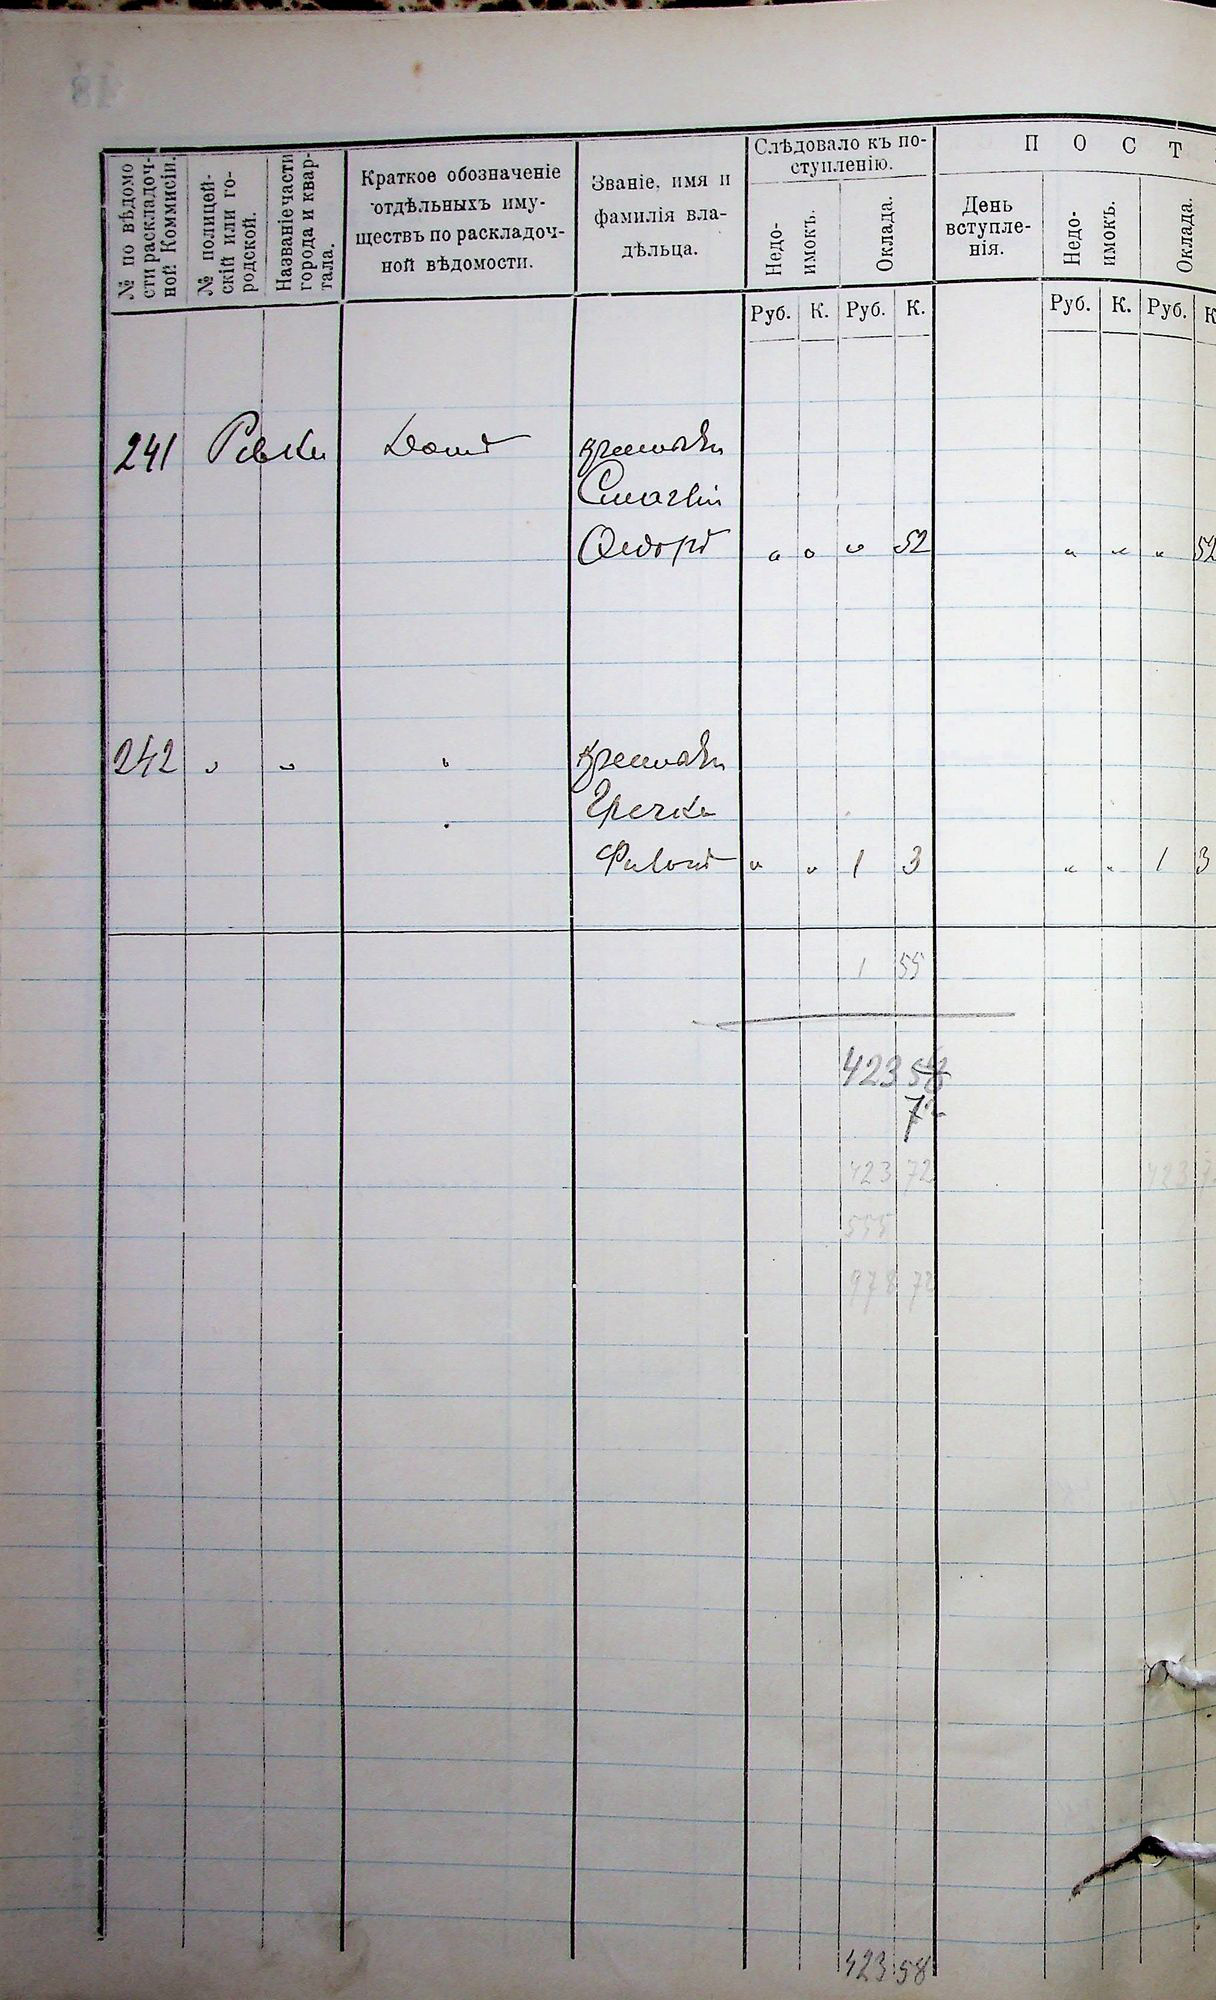 № по вѣдомо
сти раскладоч-
ной Коммисіи.
№ полицей-
скій или го-
родской.
Названіе части
города и квар-
тала.
Краткое обозначеніе
отдѣльныхъ иму-
ществъ по раскладоч-
ной вѣдомости.
Званіе, имя и
фамилія вла-
дѣльца.
Слѣдовало къ по-
ступленію.
Недо-
имокъ.
Оклада.
П О С Т
День
вступле-
нія.
Недо-
имокъ.
Оклада.
Руб. К. Руб. К. Руб. К. Руб. К
241 Домъ
Ѳедоръ „ „ „ 52 „ „ „ 52
242 „ „ „
„ „ 1 3 „ „ 1 3
1 55
423 58
72
423 72 423 7
555
978 72
423 58